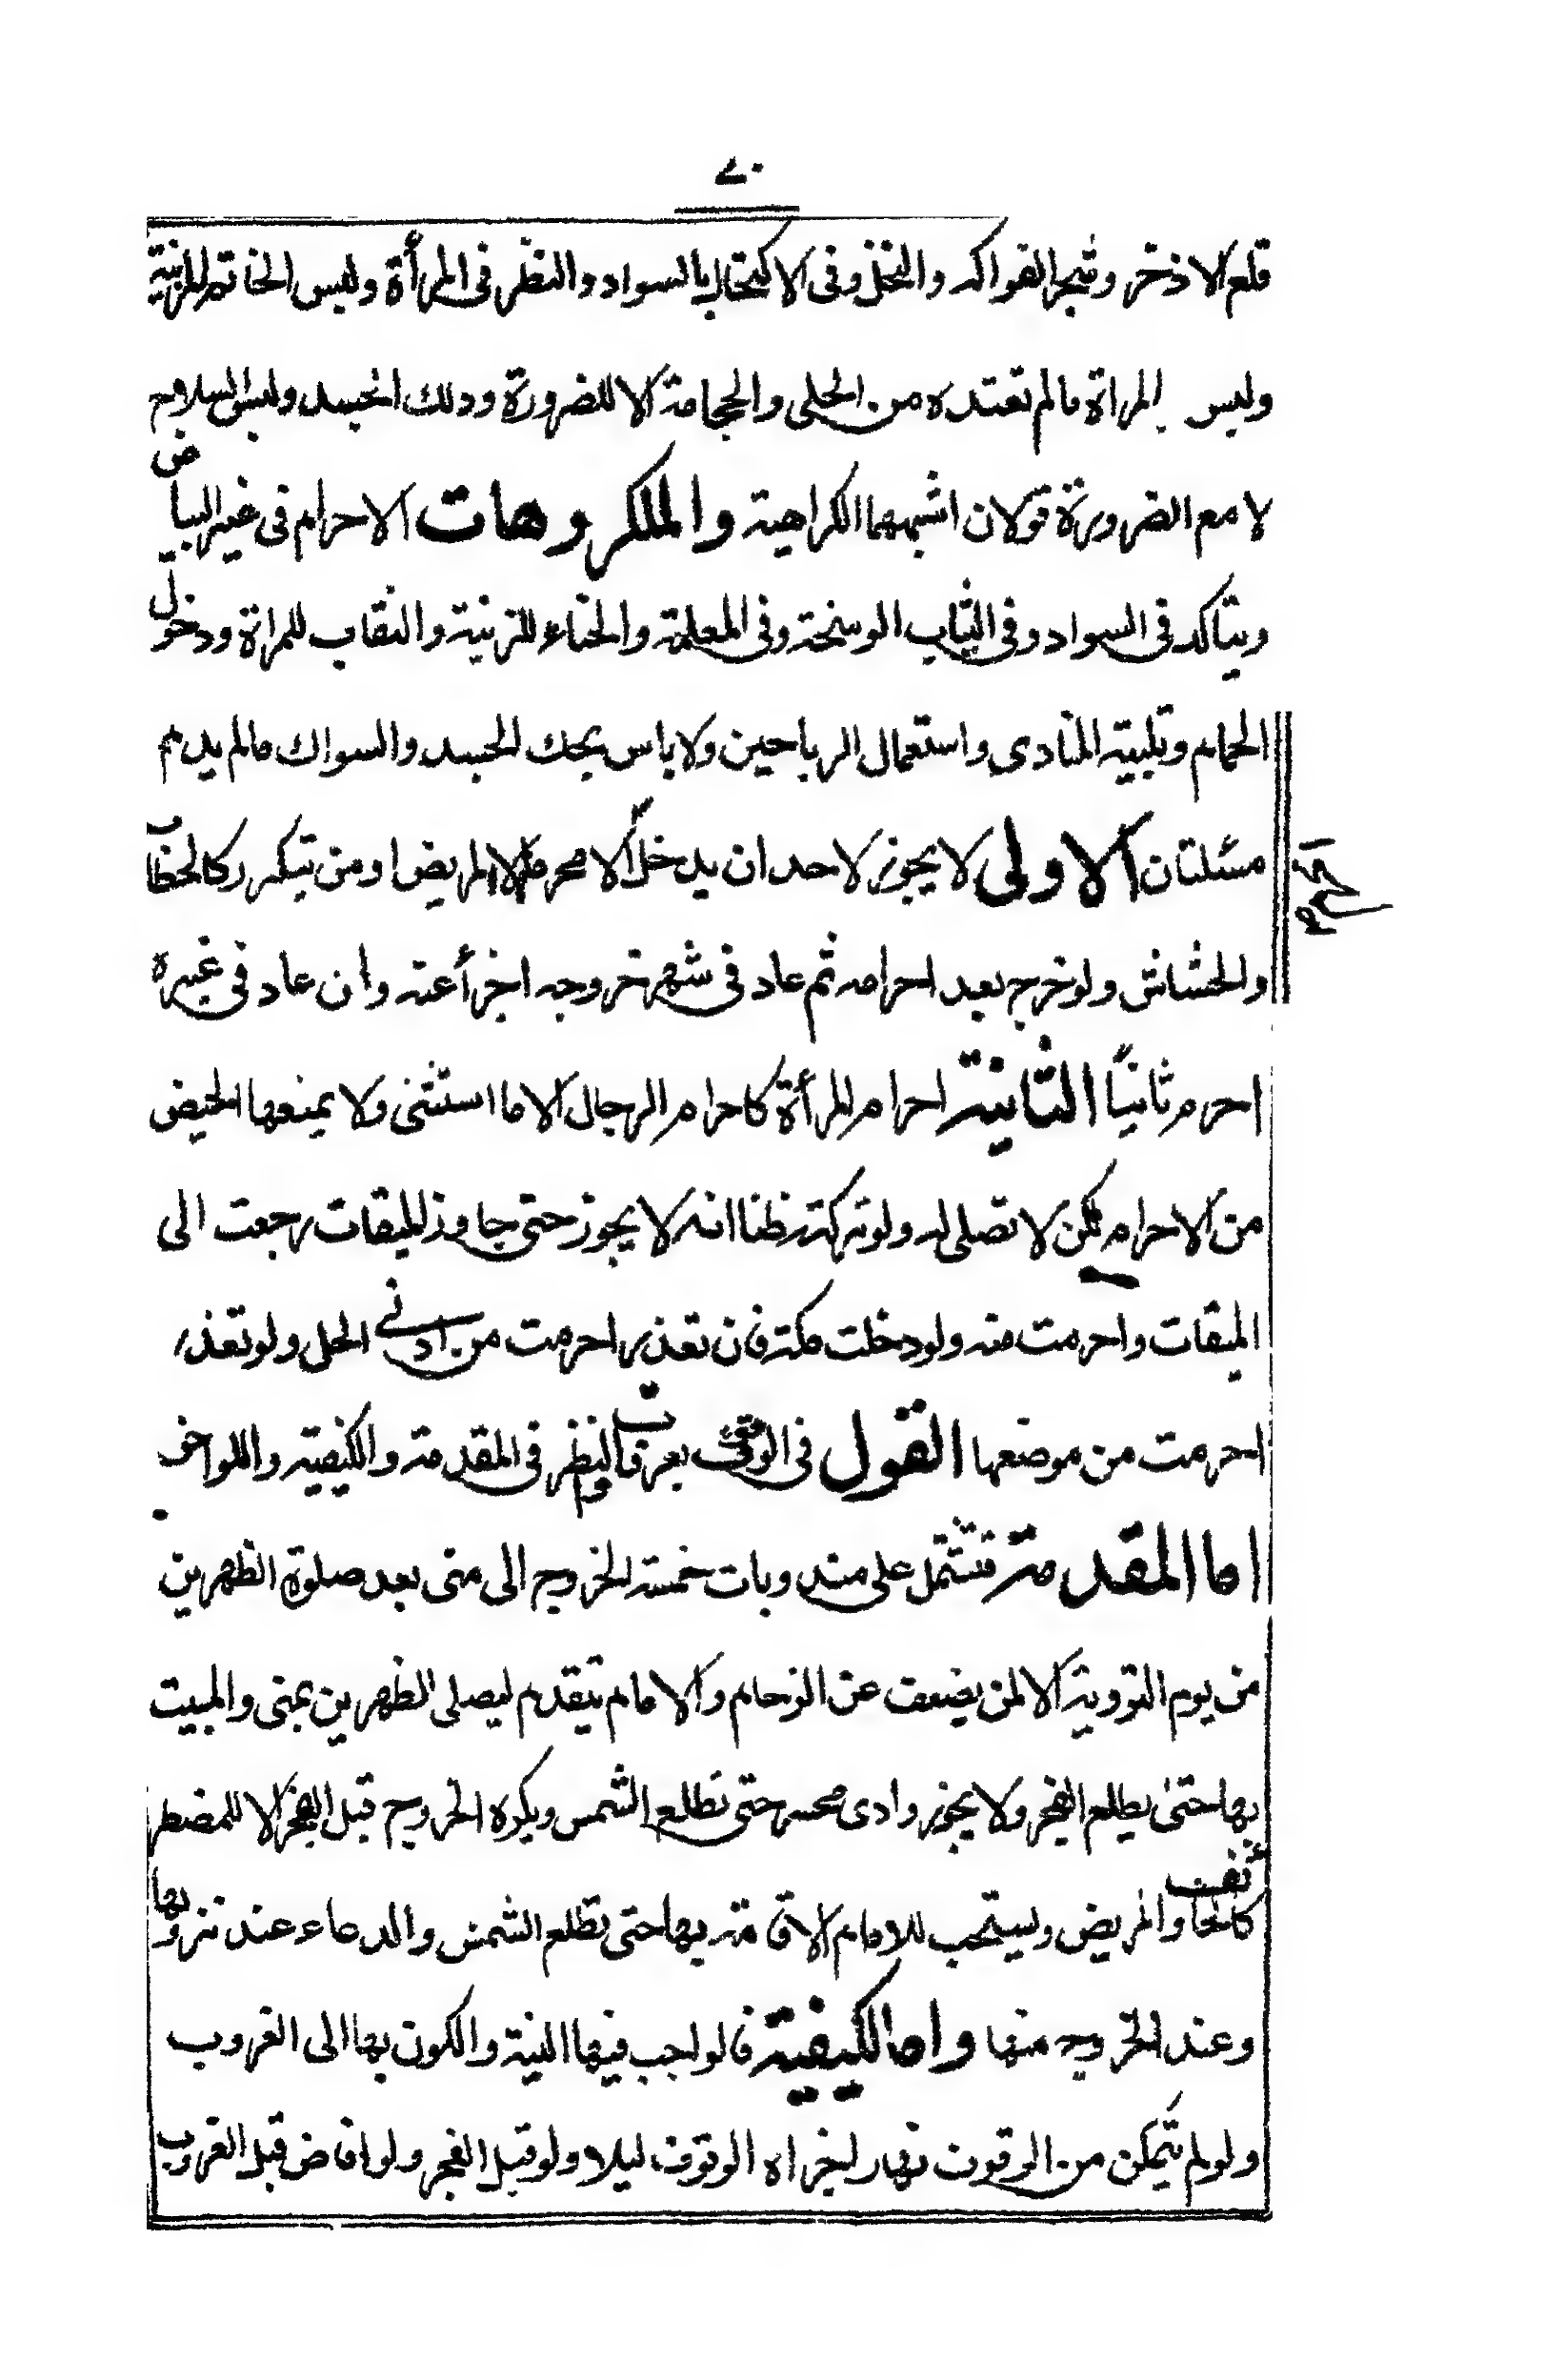 ٧٠
قلع الاذخر وشجر الفواكه والنخل وفى الاكتحال بالسواد والنظر فى المرأة ولبس الخاتم للزينة
ولبس المراة مالم تعتده من الحلى والحجامة الا للضرورة ودلك الجسد ولبس السلاح
لا مع الضرورة قولان اشبههما الكراهية والمكروهات الاحرام فى غير البياض
ويتاكد فى السواد وفى الثياب الوسخة وفى المعلمة والحناء للزينة والنقاب للمراة ودخول
الحمام وتلبية المنادى واستعمال الرياحين ولا باس بحك الجسد والسواك مالم يدم
مسئلتان الاولى لا يجوز لاحد ان يدخل مكة الا محرما الا المريض او من يتكرر كالحطاب
والحشاش ولو خرج بعد احرامه ثم عاد فى شهر خروجه اجزأ عنه وان عاد فى غيره
احرم ثانيًا الثانية احرام المرأة كاحرام الرجال الا ما استثنى ولا يمنعها الحيض
من الاحرام لكن لا تصلى له ولو تركته ظنا انه لا يجوز حتى جاوز الميقات رجعت الى
الميقات واحرمت منه ولو دخلت مكة فان تعذر احرمت من ادنى الحل ولو تعذر
احرمت من موضعها القول فى الوقوف بعرفات والنظر فى المقدمة والكيفية واللواحق
اما المقدمة فتشتمل على مندوبات خمسة الخروج الى منى بعد صلوة الظهرين
من يوم التروية الا لمن يضعف عن الزحام والامام يتقدم ليصلى الظهرين بمنى والمبيت
بها حتى يطلع الفجر ولا يجوز وادى محسر حتى تطلع الشمس ويكره الخروج قبل الفجر الا للمضطر
كالخائف والمريض ويستحب للامام الاقامة بها حتى تطلع الشمس والدعاء عند نزولها
وعند الخروج منها واما الكيفية فالواجب فيها النية والكون بها الى الغروب
ولو لم يتمكن من الوقوف نهار اجزاه الوقوف ليلا ولو قبل الفجر ولو افاض قبل الغروب